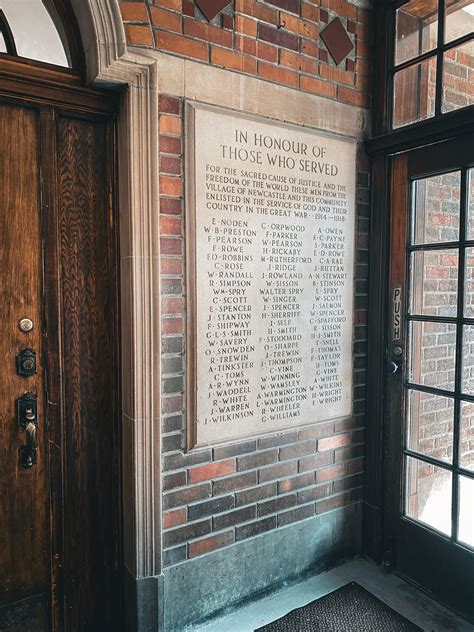 IN HONOUR OF
THOSE WHO SERVED
FOR THE SACRED CAUSE OF JUSTICE AND THE
FREEDOM OF THE WORLD THESE MEN FROM THE
VILLAGE OF NEWCASTLE AND THIS COMMUNITY
ENLISTED IN THE SERVICE OF GOD AND THEIR
COUNTRY IN THE GREAT WAR · 1914-1918
E · NODEN
W·B·PRESTON
F · PEARSON
F · ROWE
ED·ROBBINS
C · ROSE
W·RANDALL
R · SIMPSON
Wᴹ·SPRY
C · SCOTT
E · SPENCER
J · STANTON
F · SHIPWAY
G·L·S·SMITH
W · SAVERY
O · SNOWDEN
R · TREWIN
A · TINKSTER
C · TOMS
A·R·WYNN
J · WADDELL
R · WHITE
J · WARREN
J·WILKINSON
C · ORPWOOD
F · PARKER
W · PEARSON
H · RICKABY
M·RUTHERFORD
J · RIDGE
J · ROWLAND
W · SISSON
WALTER SPRY
W · SINGER
J · SPENCER
H · SHERRIFF
J · SELF
H · SMITH
F · STODDARD
O · SHARPE
J · TREWIN
J · THOMPSON
C · VINE
W · WINNING
W · WAMSLEY
A · WARMINGTON
R · WHEELER
G · WILLIAMS
A · OWEN
E·C·PAYNE
R · SISSON
H · SMITH
F · THOMAS
F · TAYLOR
H · TOMS
G · VINE
A · WHITE
W · WILKINS
E · WRIGHT
PUSH